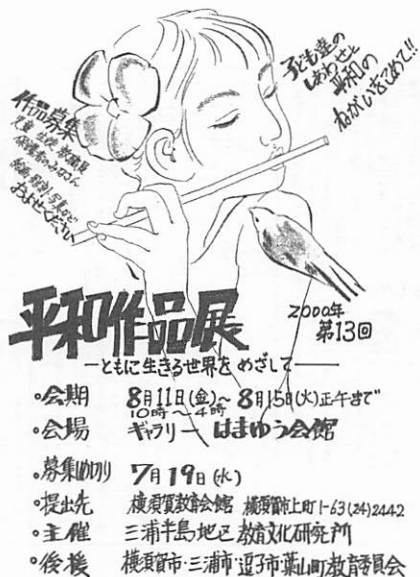 子ども達の
しあわせと
平和の
ねがいをこめて!!
作品募集
児童 生徒 教職員
保護者のみなさん
絵画 彫刻 写真など
およせください
平和作品展
2000年
第13回
―ともに生きる世界をめざして―
・会期 8月11日(金)~8月15日(火)正午まで
10時~4時
・会場 ギャラリー はまゆう会館
・募集〆切り 7月19日(水)
・提出先 横須賀教育会館 横須賀市上町1-63(24)2442
・主催 三浦半島地区教育文化研究所
・後援 横須賀市・三浦市・逗子市・葉山町教育委員会